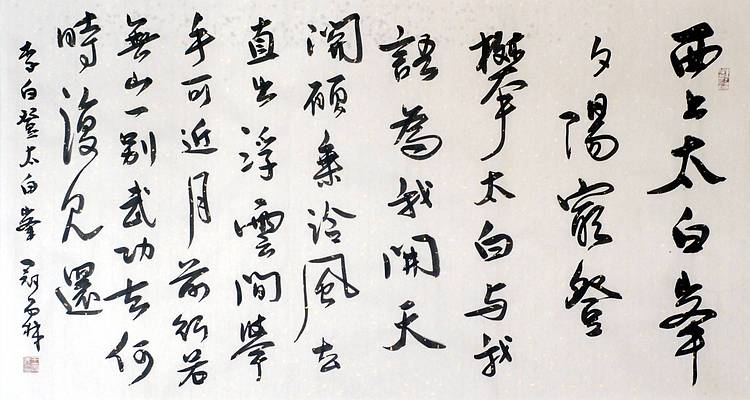 西上太白峯
夕陽窮登
攀太白与我
語為我開天
關願乘泠風去
直出浮雲間舉
手可近月前行若
無山一別武功去何
時復見還
李白登太白峯